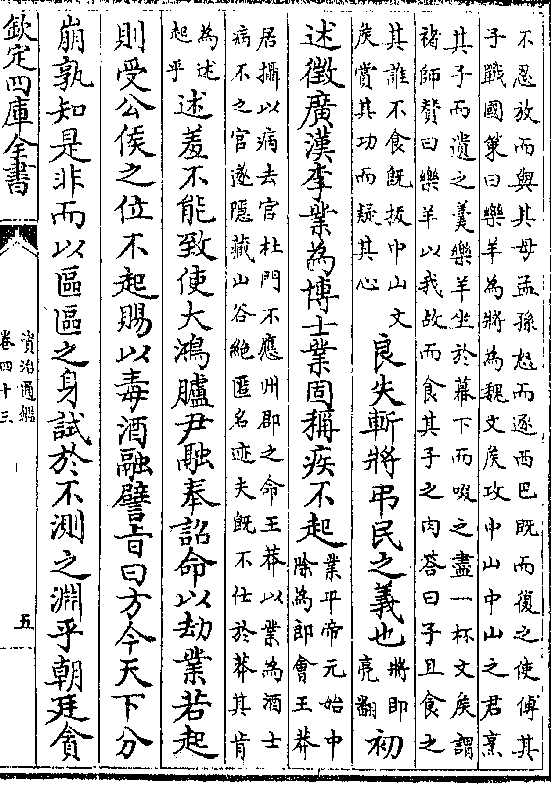 不忍放而與其母孟孫怒而逐西巴既而復之使傅其
子戰國策曰樂羊為將為魏文矦攻中山中山之君烹
其子而遺之羮樂羊坐於幕下而啜之盡一杯文矦謂
褚師賛曰樂羊以我故而食其子之肉答曰子且食之
其誰不食既拔中山文
矦賞其功而疑其心
良失斬將弔民之義也
將即
亮翻
初
述徵廣漢李業為博士業固稱疾不起
業平帝元始中
除為郎會王莽
居攝以病去官杜門不應州郡之命王莽以業為酒士
病不之官遂隱藏山谷絶匿名迹夫既不仕於莽其肯
為述
起乎
述羞不能致使大鴻臚尹融奉詔命以劫業若起
則受公侯之位不起賜以毒酒融譬㫖曰方今天下分
崩孰知是非而以區區之身試於不測之淵乎朝廷貪
欽定四庫全書
資治通鑑
卷四十三
五